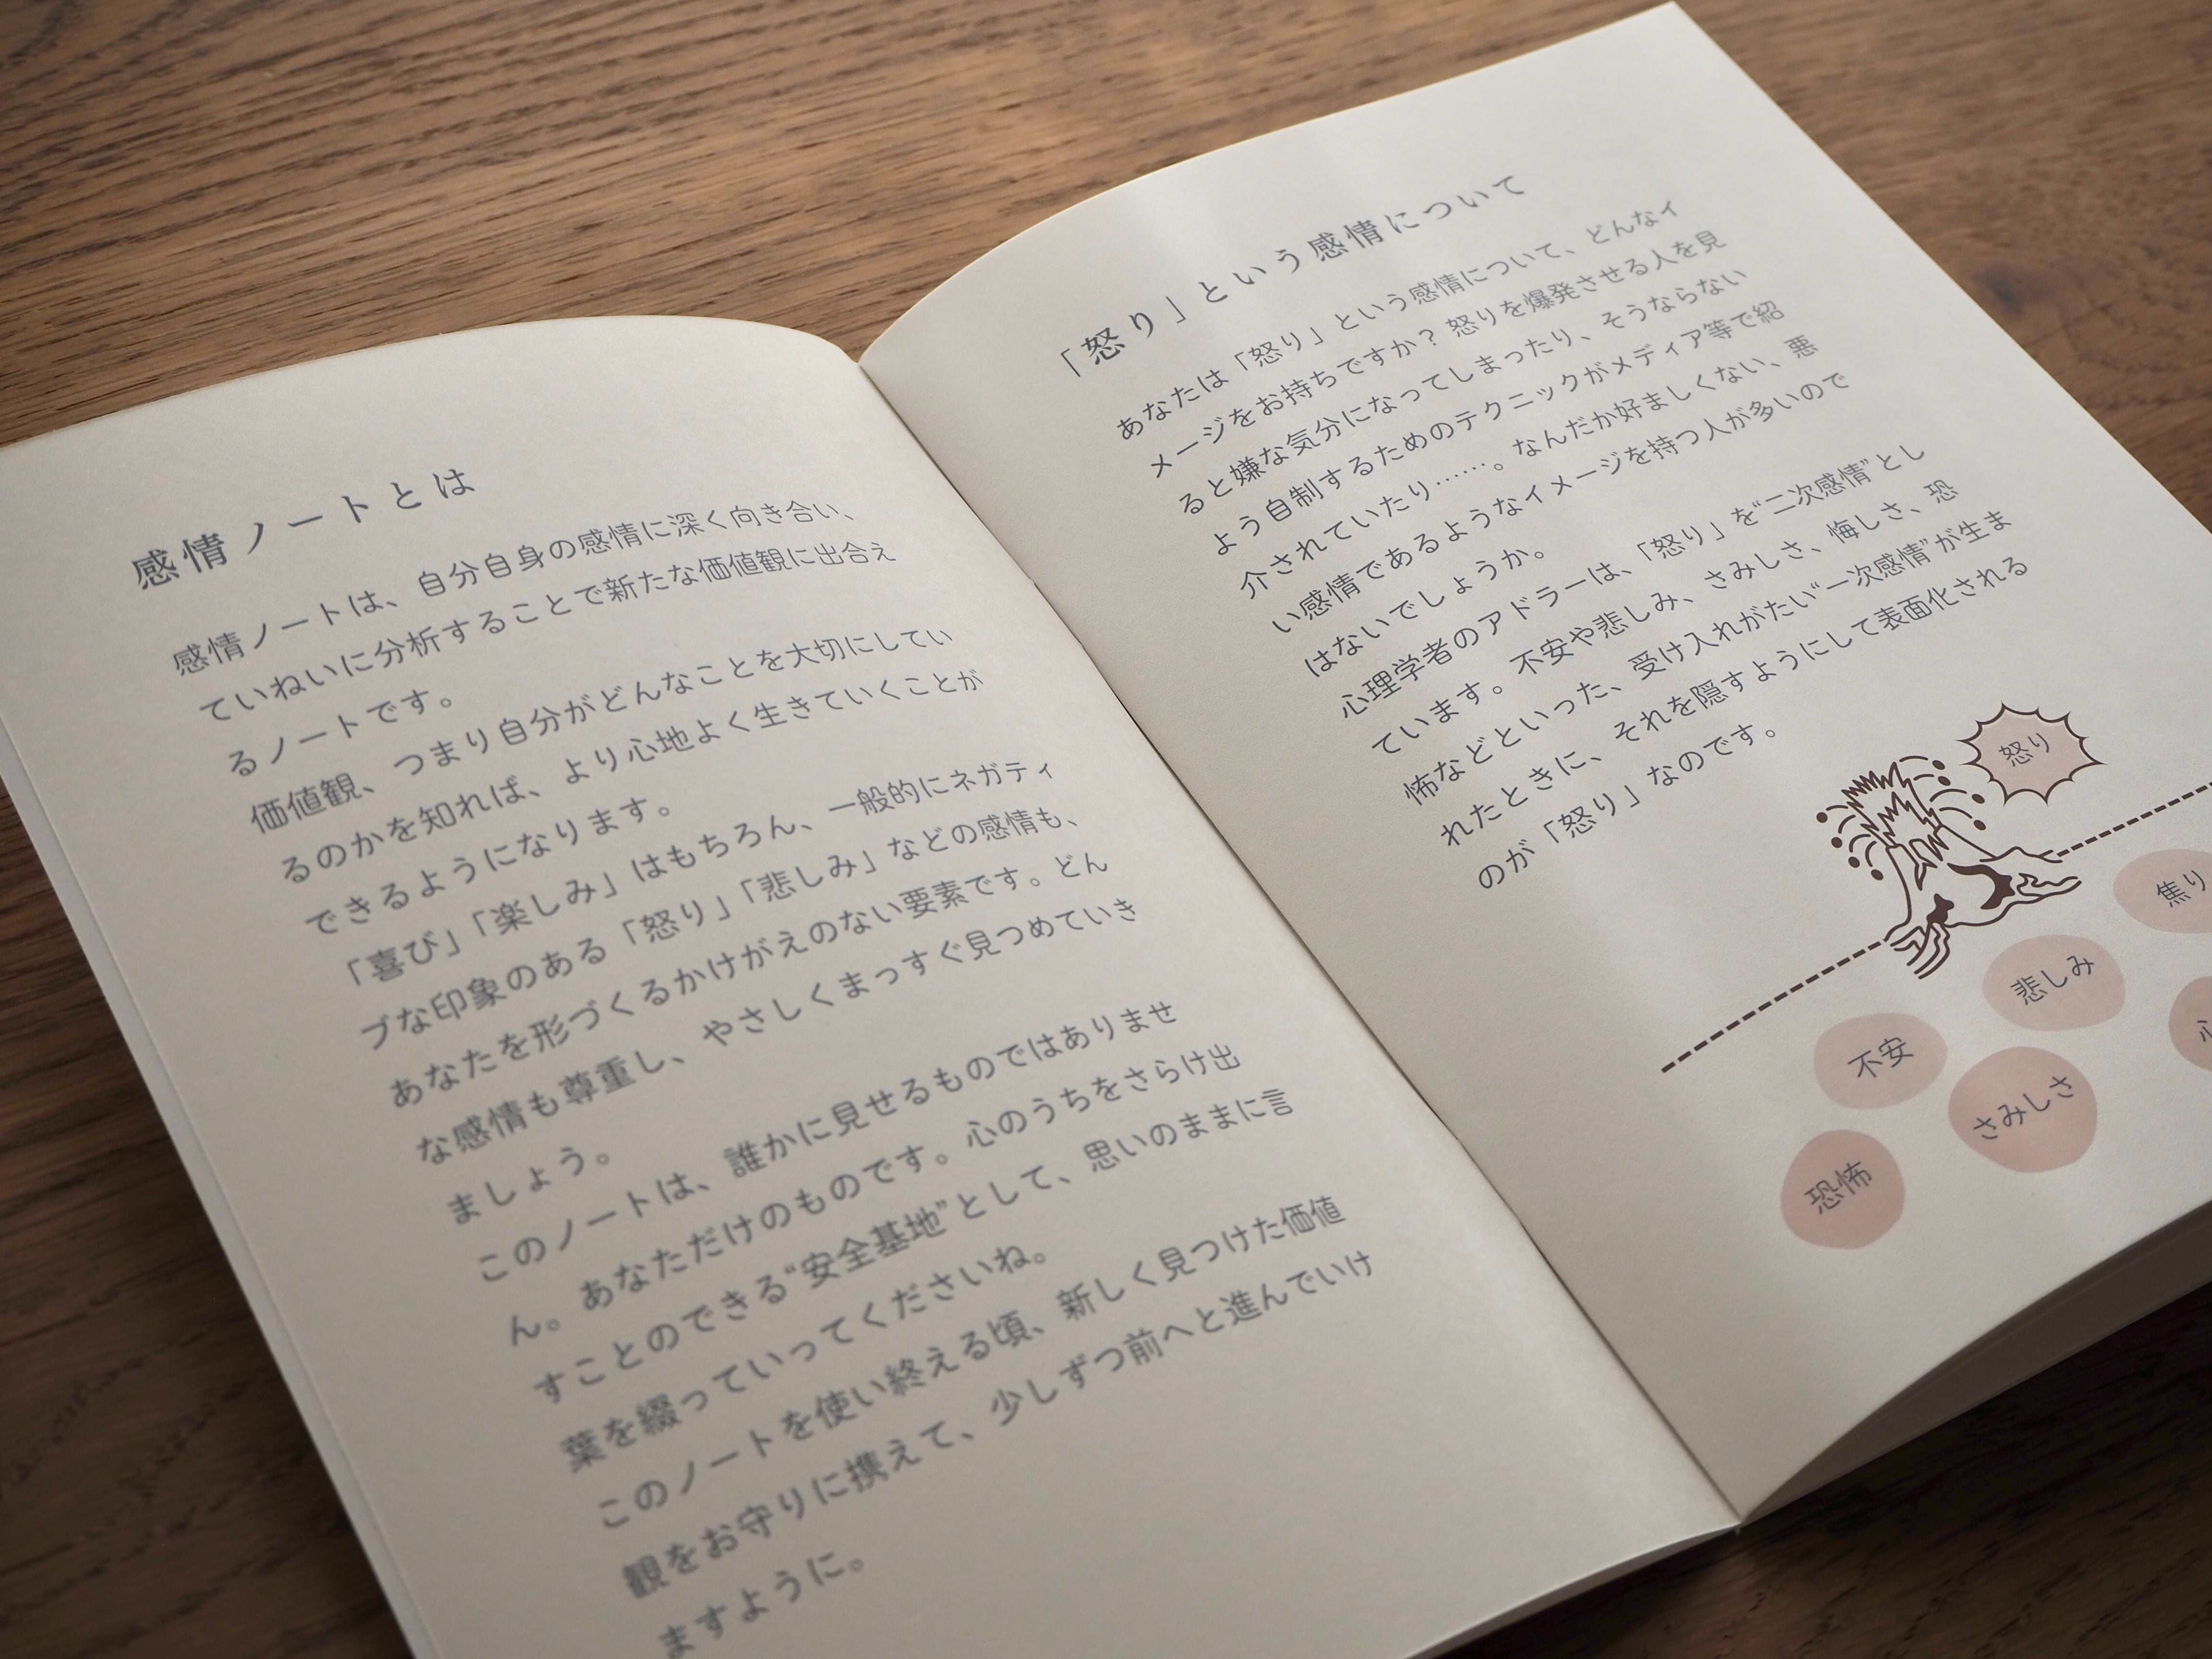 感情ノートとは
感情ノートは、自分自身の感情に深く向き合い、
ていねいに分析することで新たな価値観に出合え
るノートです。
価値観、つまり自分がどんなことを大切にしてい
るのかを知れば、より心地よく生きていくことが
できるようになります。
「喜び」「楽しみ」はもちろん、一般的にネガティ
ブな印象のある「怒り」「悲しみ」などの感情も、
あなたを形づくるかけがえのない要素です。どん
な感情も尊重し、やさしくまっすぐ見つめていき
ましょう。
このノートは、誰かに見せるものではありませ
ん。あなただけのものです。心のうちをさらけ出
すことのできる“安全基地”として、思いのままに言
葉を綴っていってくださいね。
このノートを使い終える頃、新しく見つけた価値
観をお守りに携えて、少しずつ前へと進んでいけ
ますように。
「怒り」という感情について
あなたは「怒り」という感情について、どんなイ
メージをお持ちですか？ 怒りを爆発させる人を見
ると嫌な気分になってしまったり、そうならない
よう自制するためのテクニックがメディア等で紹
介されていたり……。なんだか好ましくない、悪
い感情であるようなイメージを持つ人が多いので
はないでしょうか。
心理学者のアドラーは、「怒り」を“二次感情”とし
ています。不安や悲しみ、さみしさ、悔しさ、恐
怖などといった、受け入れがたい“一次感情”が生ま
れたときに、それを隠すようにして表面化される
のが「怒り」なのです。
怒り
焦り
悲しみ
不安
さみしさ
恐怖